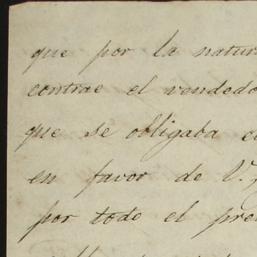 que por la natur
contrae el vendedo
que se obligaba
en favor de V.
por todo el pre